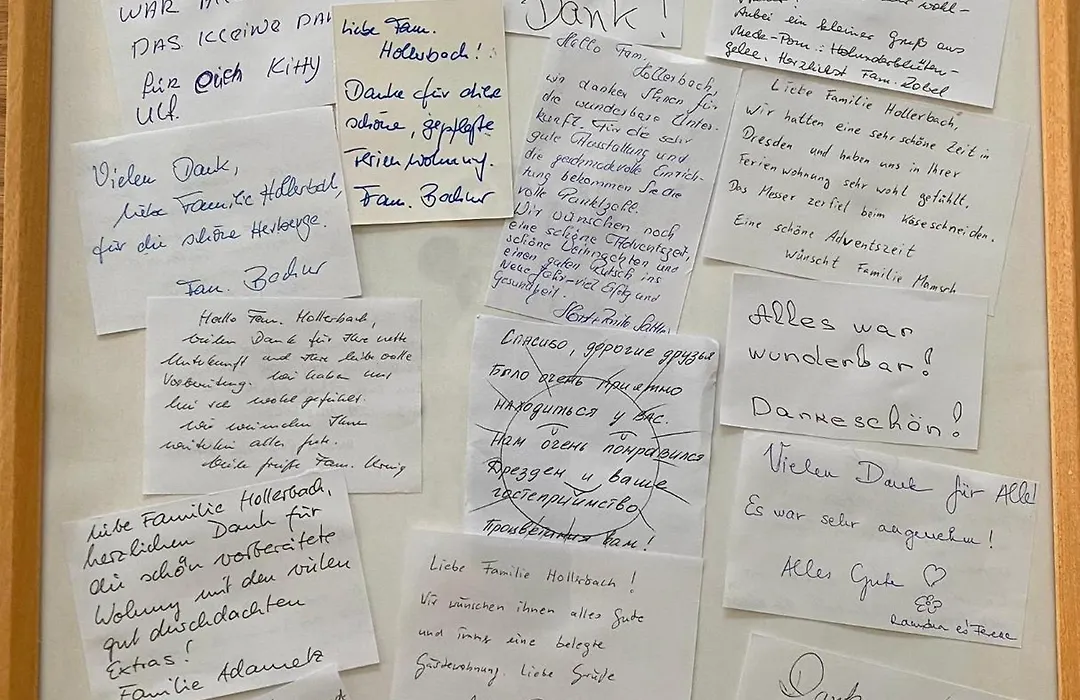 DAS KLEINE
für euch Kitty
Ulf.
Liebe Fam.
Hollerbach!
Danke für die
schöne, gepflegte
Ferienwohnung.
Fam. Bochur
Dank!
Hallo Fam.
Hollerbach,
wir danken Ihnen für
die wunderbare Unter-
kunft. Für die sehr
gute Ausstattung und
die geschmackvolle Einrich-
tung bekommen Sie die
volle Punktzahl.
Wir wünschen noch
eine schöne Adventszeit,
schöne Weihnachten und
einen guten Rutsch ins
Neue Jahr - viel Erfolg und
Gesundheit.
Anbei ein kleiner Gruß aus
Holunderblüten-
gelee. Herzlichst Fam. Zobel
Liebe Familie Hollerbach,
Wir hatten eine sehr schöne Zeit in
Dresden und haben uns in Ihrer
Ferienwohnung sehr wohl gefühlt.
Das Messer zerfiel beim Käseschneiden.
Eine schöne Adventszeit
wünscht Familie Mamsch
Vielen Dank,
liebe Familie Hollerbach,
für die schöne Herberge.
Fam. Bochur
Hallo Fam. Hollerbach,
vielen Dank für Ihre nette
Unterkunft und Ihre liebevolle
Vorbereitung. Wir haben uns
wohl gefühlt.
Wir wünschen Ihnen
weiterhin alles gute.
Fam. König
Спасибо, дорогие друзья
Было очень приятно
находиться у вас.
Нам очень понравился
Дрезден и ваше
гостеприимство
Процветания вам!
Alles war
wunderbar!
Dankeschön!
Vielen Dank für Alle!
Es war sehr angenehm!
Alles Gute ♡
Liebe Familie Hollerbach,
herzlichen Dank für
die schön vorbereitete
Wohnung mit den vielen
gut durchdachten
Extras!
Familie Adametz
Liebe Familie Hollerbach!
Wir wünschen ihnen alles Gute
und immer eine belegte
Gästewohnung. Liebe Grüße
Dank